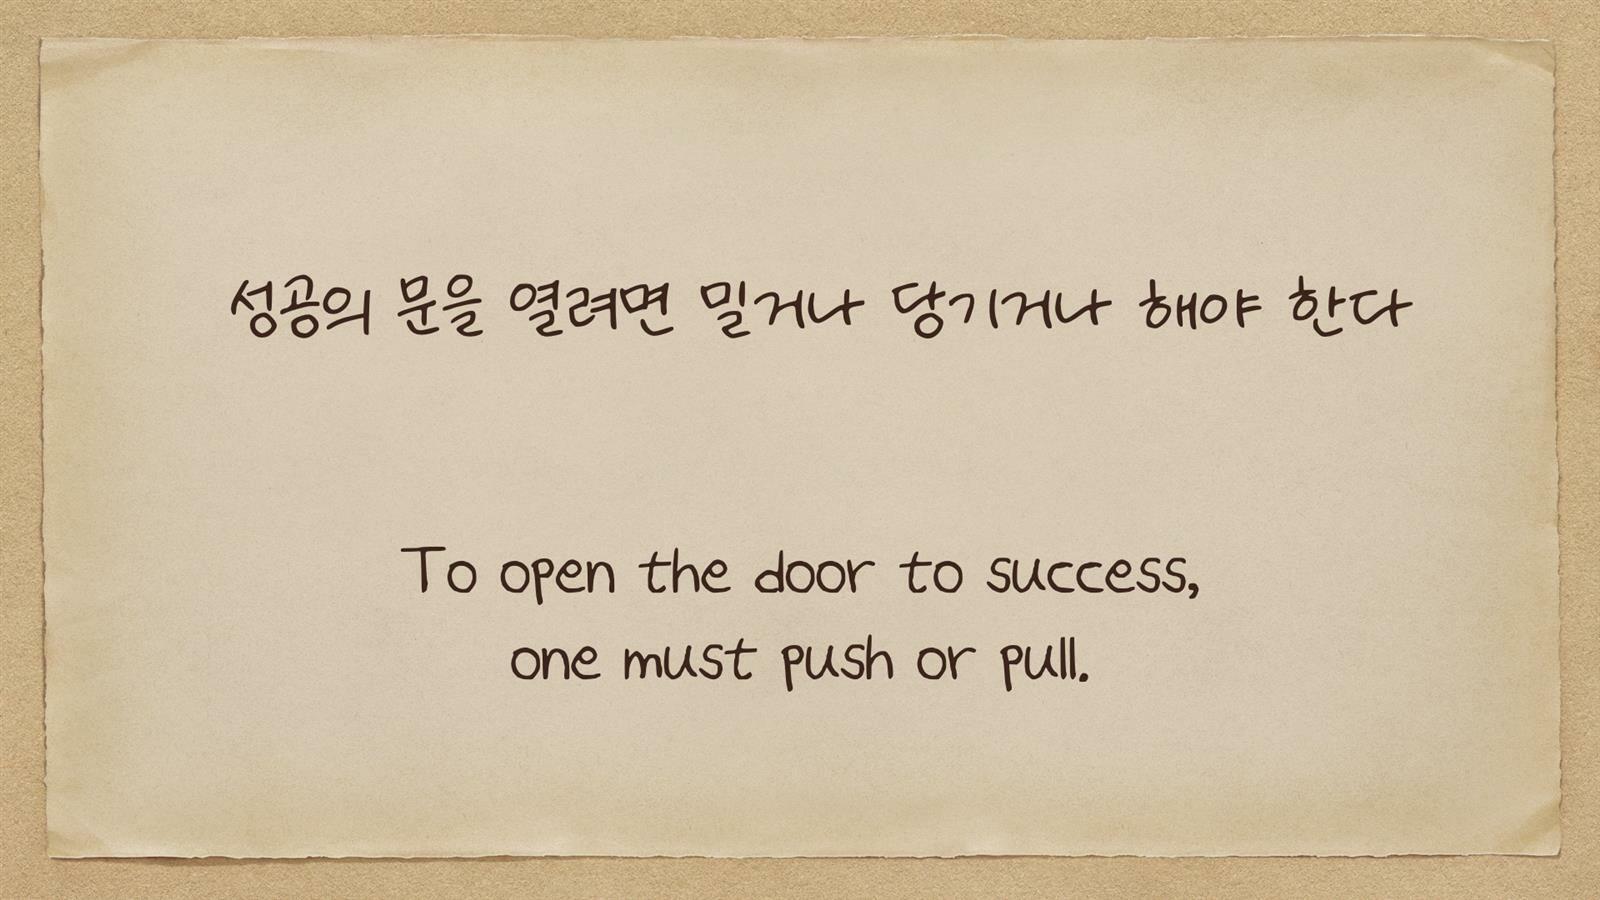 성공의 문을 열려면 밀거나 당기거나 해야 한다
To open the door to success,
one must push or pull.